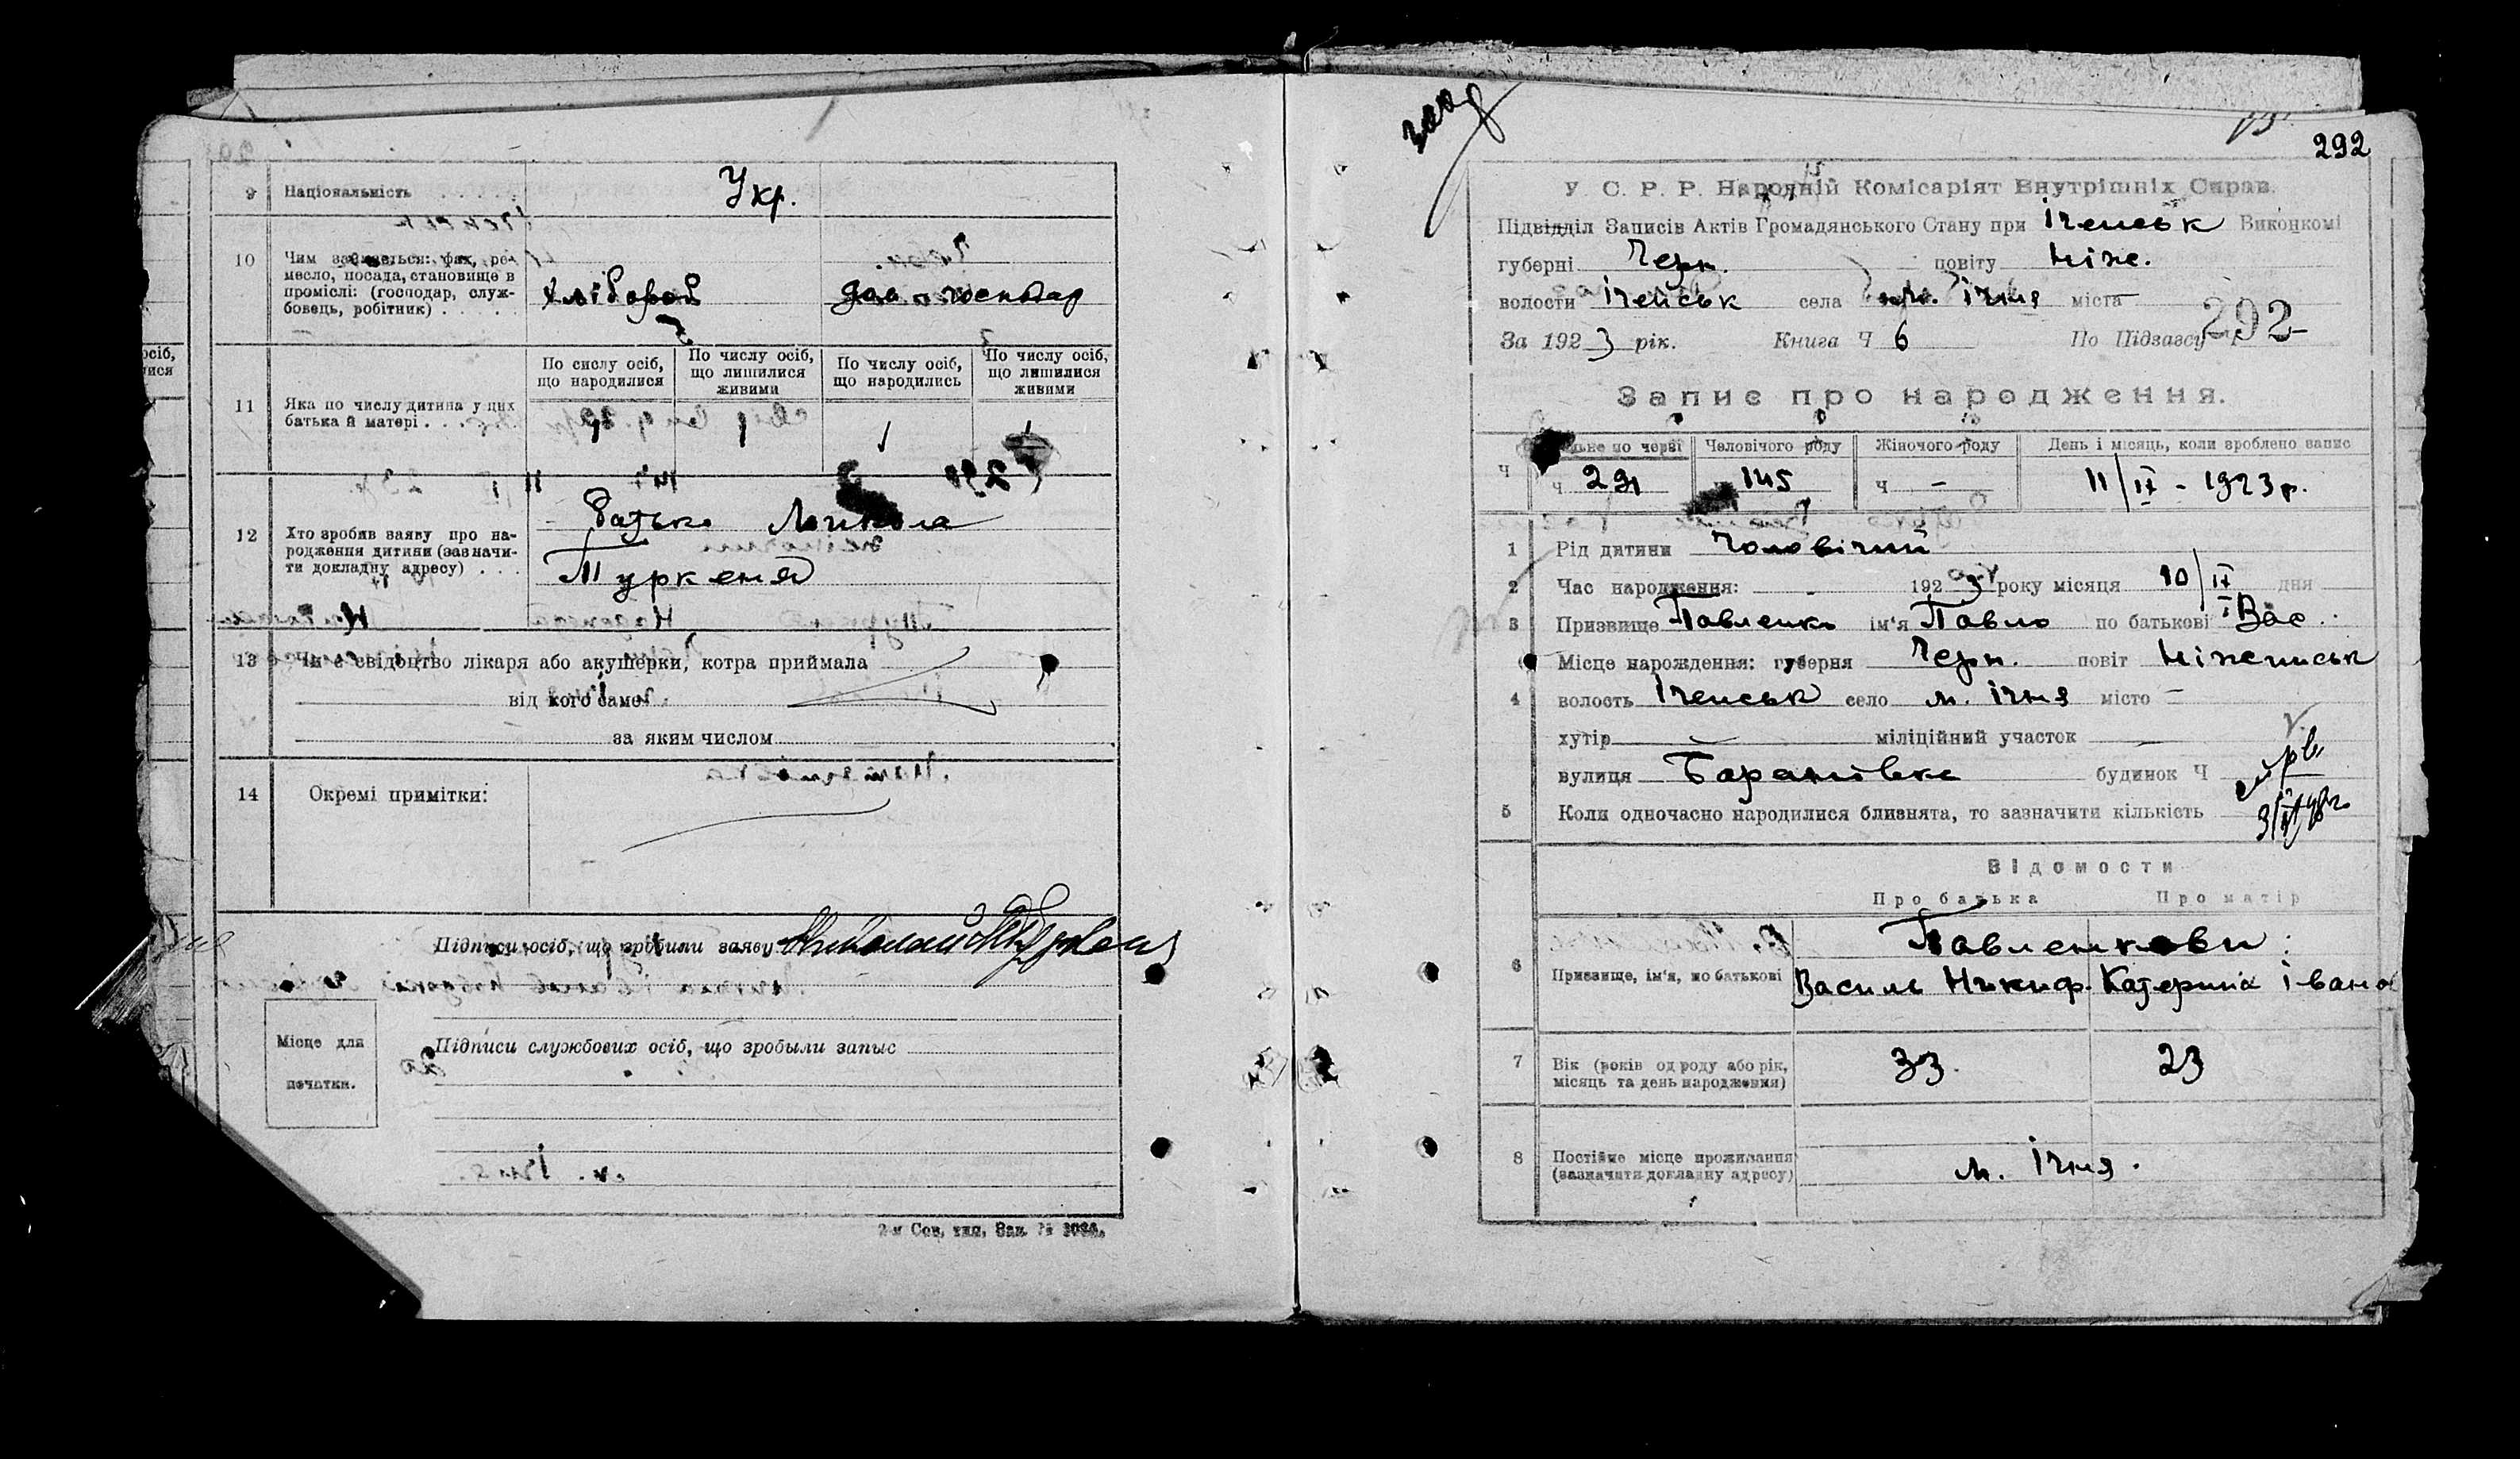 9 Національність . . . . . Укр.
10 Чим займається: фах, ре-
месло, посада, становище в
проміслі: (господар, служ-
бовець, робітник) . . . . .
хлібороб дом. господар
осіб,
лися
11 Яка по числу дитина у цих
батька й матері . . .
По сислу осіб,
що народилися
По числу осіб,
що лишилися
живими
По числу осіб,
що народились
По числу осіб,
що лишилися
живими
1 1 1
12 Хто зробив заяву про на-
родження дитини (зазначи-
ти докладну адресу) . . .
Батько Микола
Туркеня
13 Чи є свідоцтво лікаря або акушерки, котра приймала
від кого саме
за яким числом
14 Окремі примітки:
Підписи осіб, що зробили заяву Николай Туркеня
Місце для
печатки.
Підписи службових осіб, що зробыли запыс
2-я Сов. тип. Зак. №
292
У. С. Р. Р. Народній Комісаріят Внутрішніх Справ.
Підвідділ Записів Актів Громадянського Стану при Іченськ Виконкомі
губерні Черн. повіту Ніже.
волости Іченськ села м. Ічня міста —
За 1923 рік. Книга Ч 6 По Підзагсу Ч 292
Запис про народження.
Ч
по черзі Человічого роду Жіночого роду День і місяць, коли зроблено запис
Ч 291 145 Ч – 11/IX - 1923 р.
1 Рід дитини Чоловічий
2 Час народження: 1923 року місяця 10/IX дня
3 Призвище Павленко ім'я Павло по батькові Вас.
4 Місце нарождення: губерня Черн. повіт Ніженськ
волость Іченськ село м. Ічня місто –
хутір — міліційний участок —
вулиця Баранівка будинок Ч
5 Коли одночасно народилися близнята, то зазначити кількість
Відомости
Про батька Про матір
6 Призвище, ім'я, по батькові
Павленкови:
Василь Никиф. Катерина Івано
7 Вік (років од роду або рік,
місяць та день народження)
33 23
8 Постійне місце проживання
(зазначити докладну адресу)
м. Ічня.